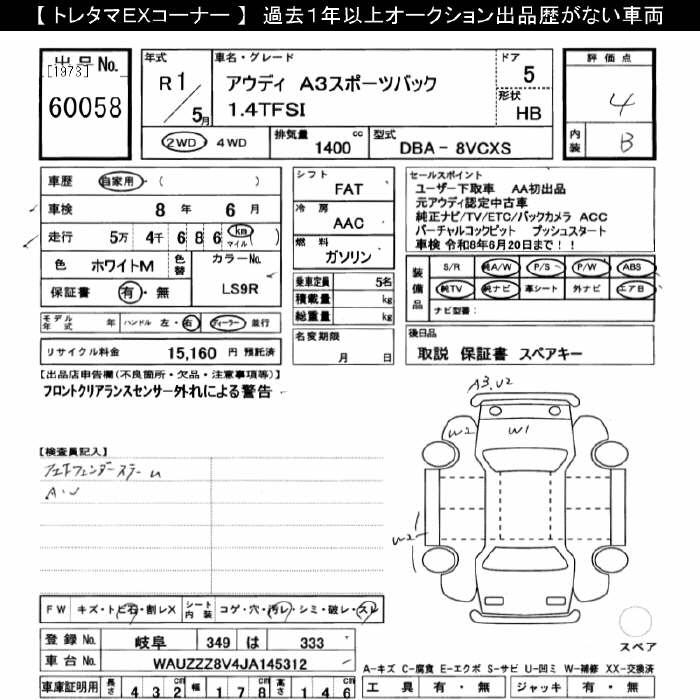 【 トレタマEXコーナー 】 過去１年以上オークション出品歴がない車両
出品 No.
[1973]
60058
年式
R1/5月
車名・グレード
アウディ A3スポーツバック
1.4TFSI
ドア
5
形状
HB
評価点
4
内装
B
2WD ・ 4WD
排気量 1400 cc
型式 DBA - 8VCXS
車歴 自家用・( )
車検 8 年 6 月
走行 5万 4千 6 8 6 km マイル ( )
色 ホワイトM 色替 カラーNo.
LS9R
保証書 有・無
モデル年式 年 ハンドル 左・右 ディーラー 並行
リサイクル料金 15,160 円 預託済
シフト
FAT
冷房
AAC
燃料
ガソリン
乗車定員 5名
積載量 kg
総重量 kg
名変期限
月 日
セールスポイント
ユーザー下取車 AA初出品
元アウディ認定中古車
純正ナビ/TV/ETC/バックカメラ ACC
バーチャルコックピット プッシュスタート
車検 令和8年6月20日まで！！
装備品
S/R 純A/W P/S P/W ABS
純TV 純ナビ 革シート 外ナビ エアB
ナビ型番：
後日品
取説 保証書 スペアキー
【出品店申告欄(不良箇所・欠品・注意事項等)】
フロントクリアランスセンサー外れによる警告
【検査員記入】
A・U
A3,U2
W2
W1
W2
スペア
FW キズ・トビ石・割レX シート内装 コゲ・穴・汚レ・シミ・破レ・スレ
登録 No. 岐阜 349 は 333
車台 No. WAUZZZ8V4JA145312
車庫証明用 長さ 4 3 2 cm 幅 1 7 8 cm 高さ 1 4 6 cm
A-キズ C-腐食 E-エクボ S-サビ U-凹ミ W-補修 XX-交換済
工具 有・無 ジャッキ 有・無